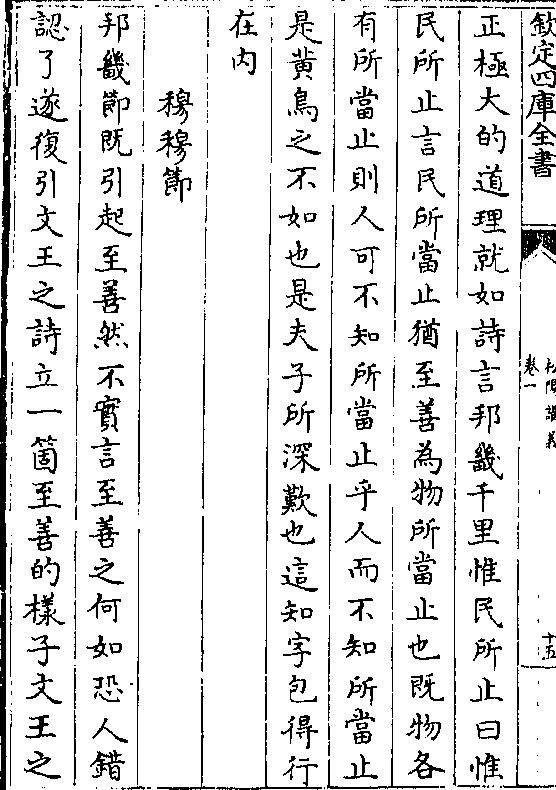 欽定四庫全書
松陽講義
卷一
十五
正極大的道理就如詩言邦畿千里惟民所止曰惟
民所止言民所當止猶至善為物所當止也既物各
有所當止則人可不知所當止乎人而不知所當止
是黃鳥之不如也是夫子所深歎也這知字包得行
在內
穆穆節
邦畿節既引起至善然不實言至善之何如恐人錯
認了遂復引文王之詩立一箇至善的樣子文王之